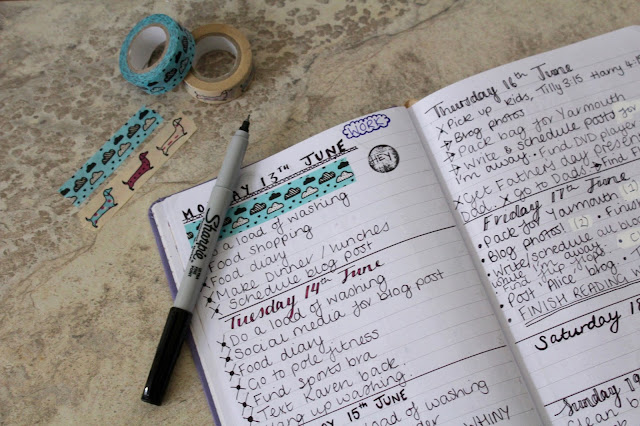 MONDAY 13TH JUNE
HEY
Do a load of washing
Food shopping
Food diary
Make Dinner / lunches
Schedule blog post
Tuesday 14th June
Do a load of washing
Social media for blog post
Food diary
Go to pole fitness
Find sports bra
Text Karen back.
Hang up washing.
15TH JUNE
load of washing
Sharpie
Thursday 16th June
Pick up kids, Tilly 3:15 Harry 4:15
Brog photos
Pack bag for Yarmouth
Write & schedule posts for
I'm away · Find DVD player
Get Fathers day present
Dad × Go to Dads × Find
Friday 17th June
Pack for Yarmouth
Blog photos (2) · Finish
Write/schedule all blog
while away
Post Alice blog.
FINISH READING
Saturday 18
Sunday 19
Clean